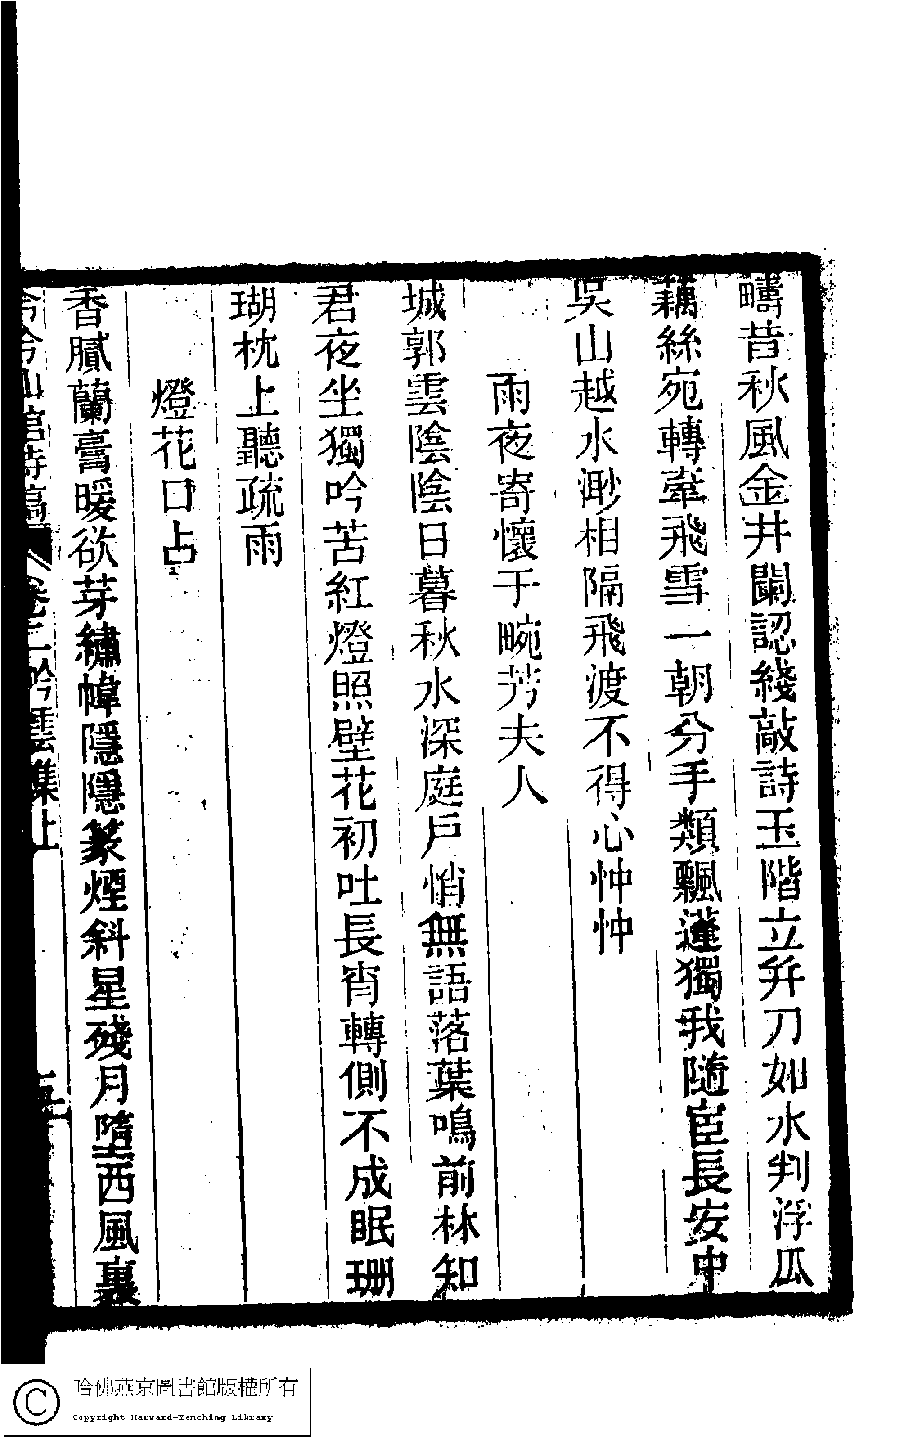 疇昔秋風金井闌認綫敲詩玉階立幷刀如水判浮瓜
藕絲宛轉牽飛雪一朝分手類飄蓬獨我隨宦長安中
吳山越水渺相隔飛渡不得心忡忡
雨夜寄懷于畹芳夫人
城郭雲陰陰日暮秋水深庭戶悄無語落葉鳴前林知
君夜坐獨吟苦紅燈照壁花初吐長宵轉側不成眠珊
瑚枕上聽疏雨
燈花口占
香膩蘭膏暖欲芽繡幃隱隱篆煙斜星殘月墮西風裏
山館詩稿 卷二 吟雲集上
哈佛燕京圖書館版權所有
Copyright Harvard-Yenching Library